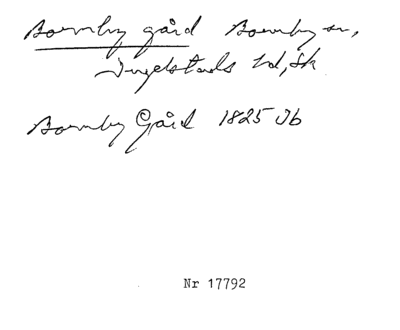 Bornby gård Bornby sn,
Ingelstads hd, Sk
Bornby Gård 1825 Jb
Nr 17792